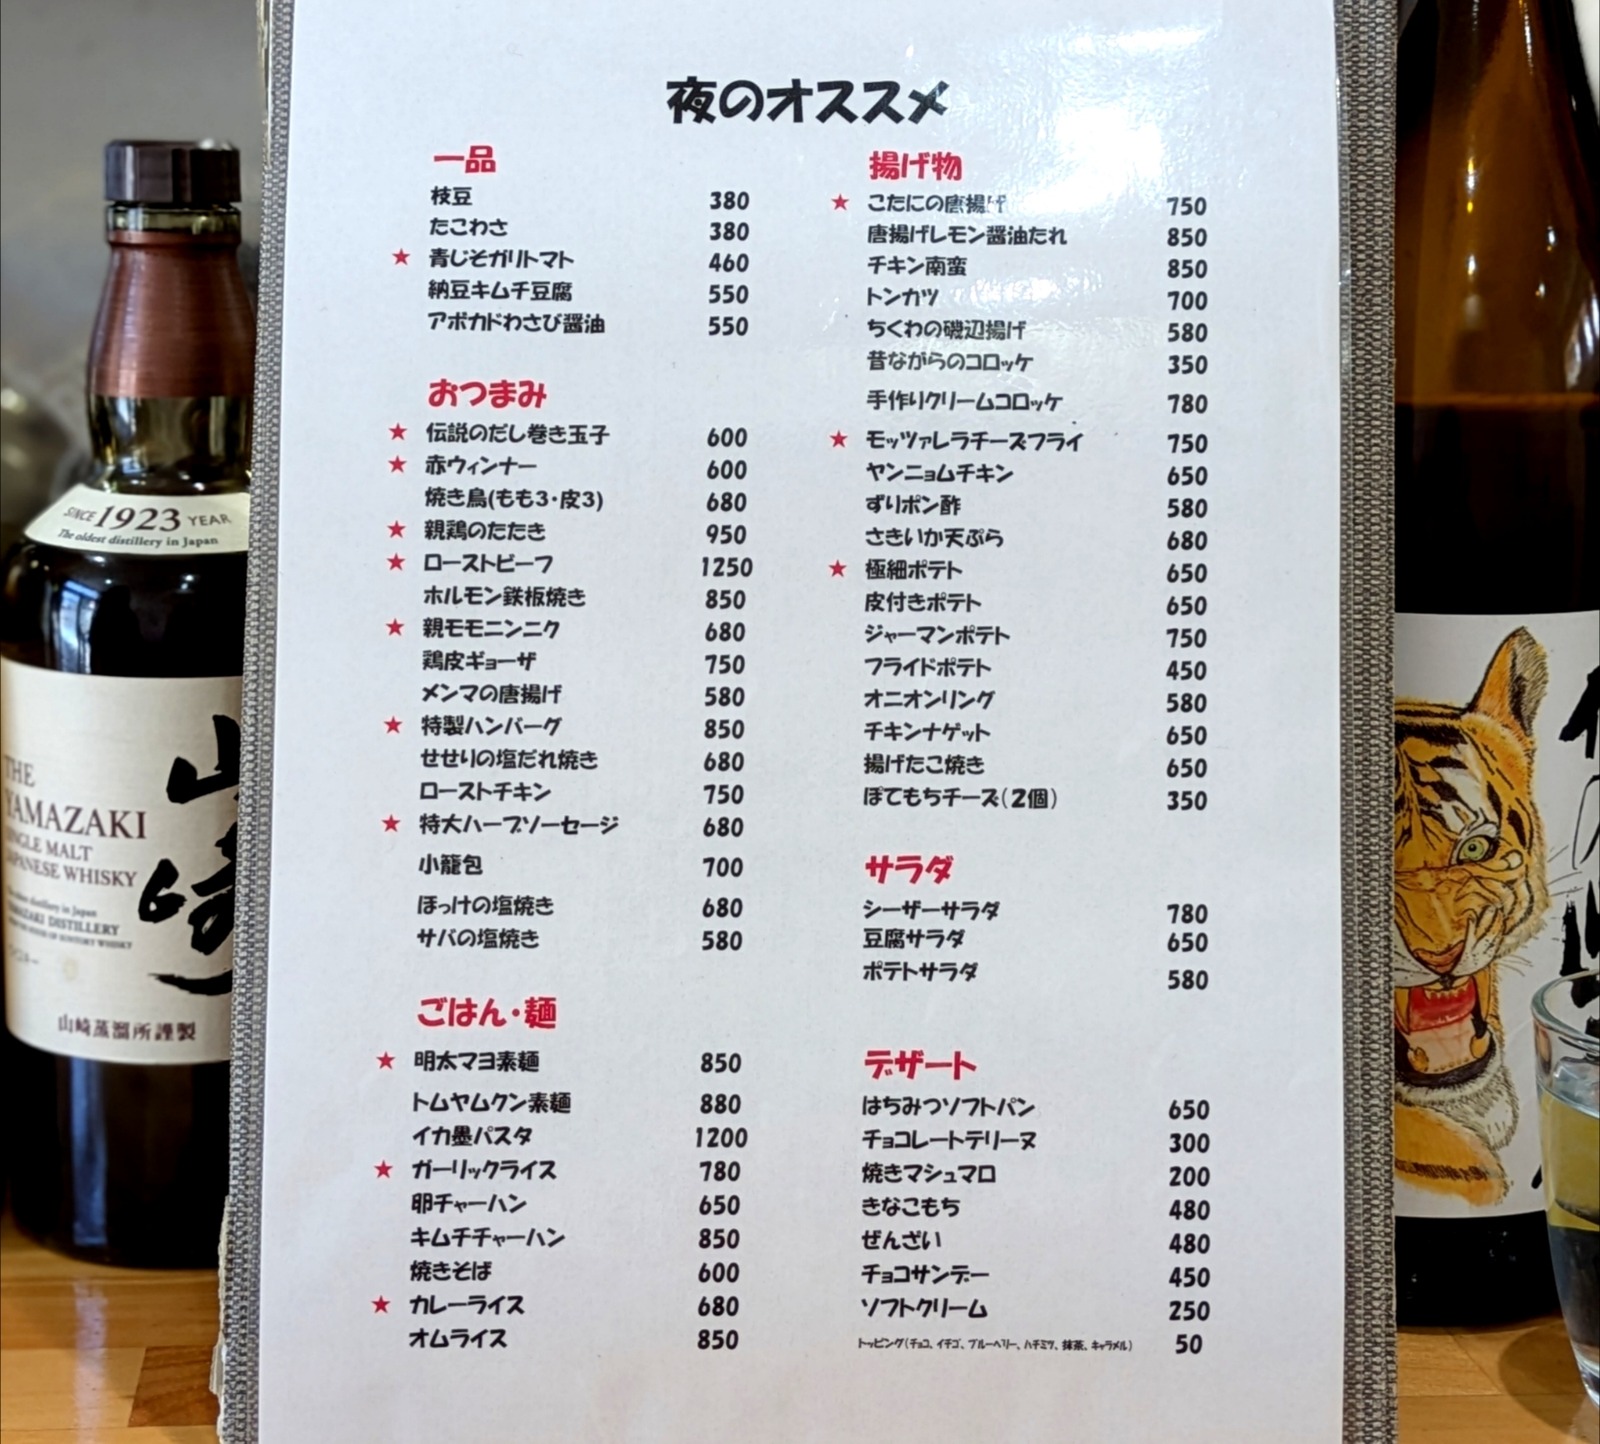 夜のオススメ
一品
枝豆 380
たこわさ 380
★ 青じそガリトマト 460
納豆キムチ豆腐 550
アボカドわさび醤油 550
おつまみ
★ 伝説のだし巻き玉子 600
★ 赤ウィンナー 600
焼き鳥(もも3・皮3) 680
★ 親鶏のたたき 950
★ ローストビーフ 1250
ホルモン鉄板焼き 850
★ 親モモニンニク 680
鶏皮ギョーザ 750
メンマの唐揚げ 580
★ 特製ハンバーグ 850
せせりの塩だれ焼き 680
ローストチキン 750
★ 特大ハーブソーセージ 680
小籠包 700
ほっけの塩焼き 680
サバの塩焼き 580
ごはん・麺
★ 明太マヨ素麺 850
トムヤムクン素麺 880
イカ墨パスタ 1200
★ ガーリックライス 780
卵チャーハン 650
キムチチャーハン 850
焼きそば 600
★ カレーライス 680
オムライス 850
揚げ物
★ こたにの唐揚げ 750
唐揚げレモン醤油たれ 850
チキン南蛮 850
トンカツ 700
ちくわの磯辺揚げ 580
昔ながらのコロッケ 350
手作りクリームコロッケ 780
★ モッツァレラチーズフライ 750
ヤンニョムチキン 650
ずりポン酢 580
さきいか天ぷら 680
★ 極細ポテト 650
皮付きポテト 650
ジャーマンポテト 750
フライドポテト 450
オニオンリング 580
チキンナゲット 650
揚げたこ焼き 650
ぽてもちチーズ(2個) 350
サラダ
シーザーサラダ 780
豆腐サラダ 650
ポテトサラダ 580
デザート
はちみつソフトパン 650
チョコレートテリーヌ 300
焼きマシュマロ 200
きなこもち 480
ぜんざい 480
チョコサンデー 450
ソフトクリーム 250
トッピング(チョコ、イチゴ、ブルーベリー、ハチミツ、抹茶、キャラメル) 50
SINCE 1923 YEAR
The oldest distillery in Japan
THE
YAMAZAKI
SINGLE MALT
JAPANESE WHISKY
YAMAZAKI DISTILLERY
山崎
山崎蒸溜所謹製